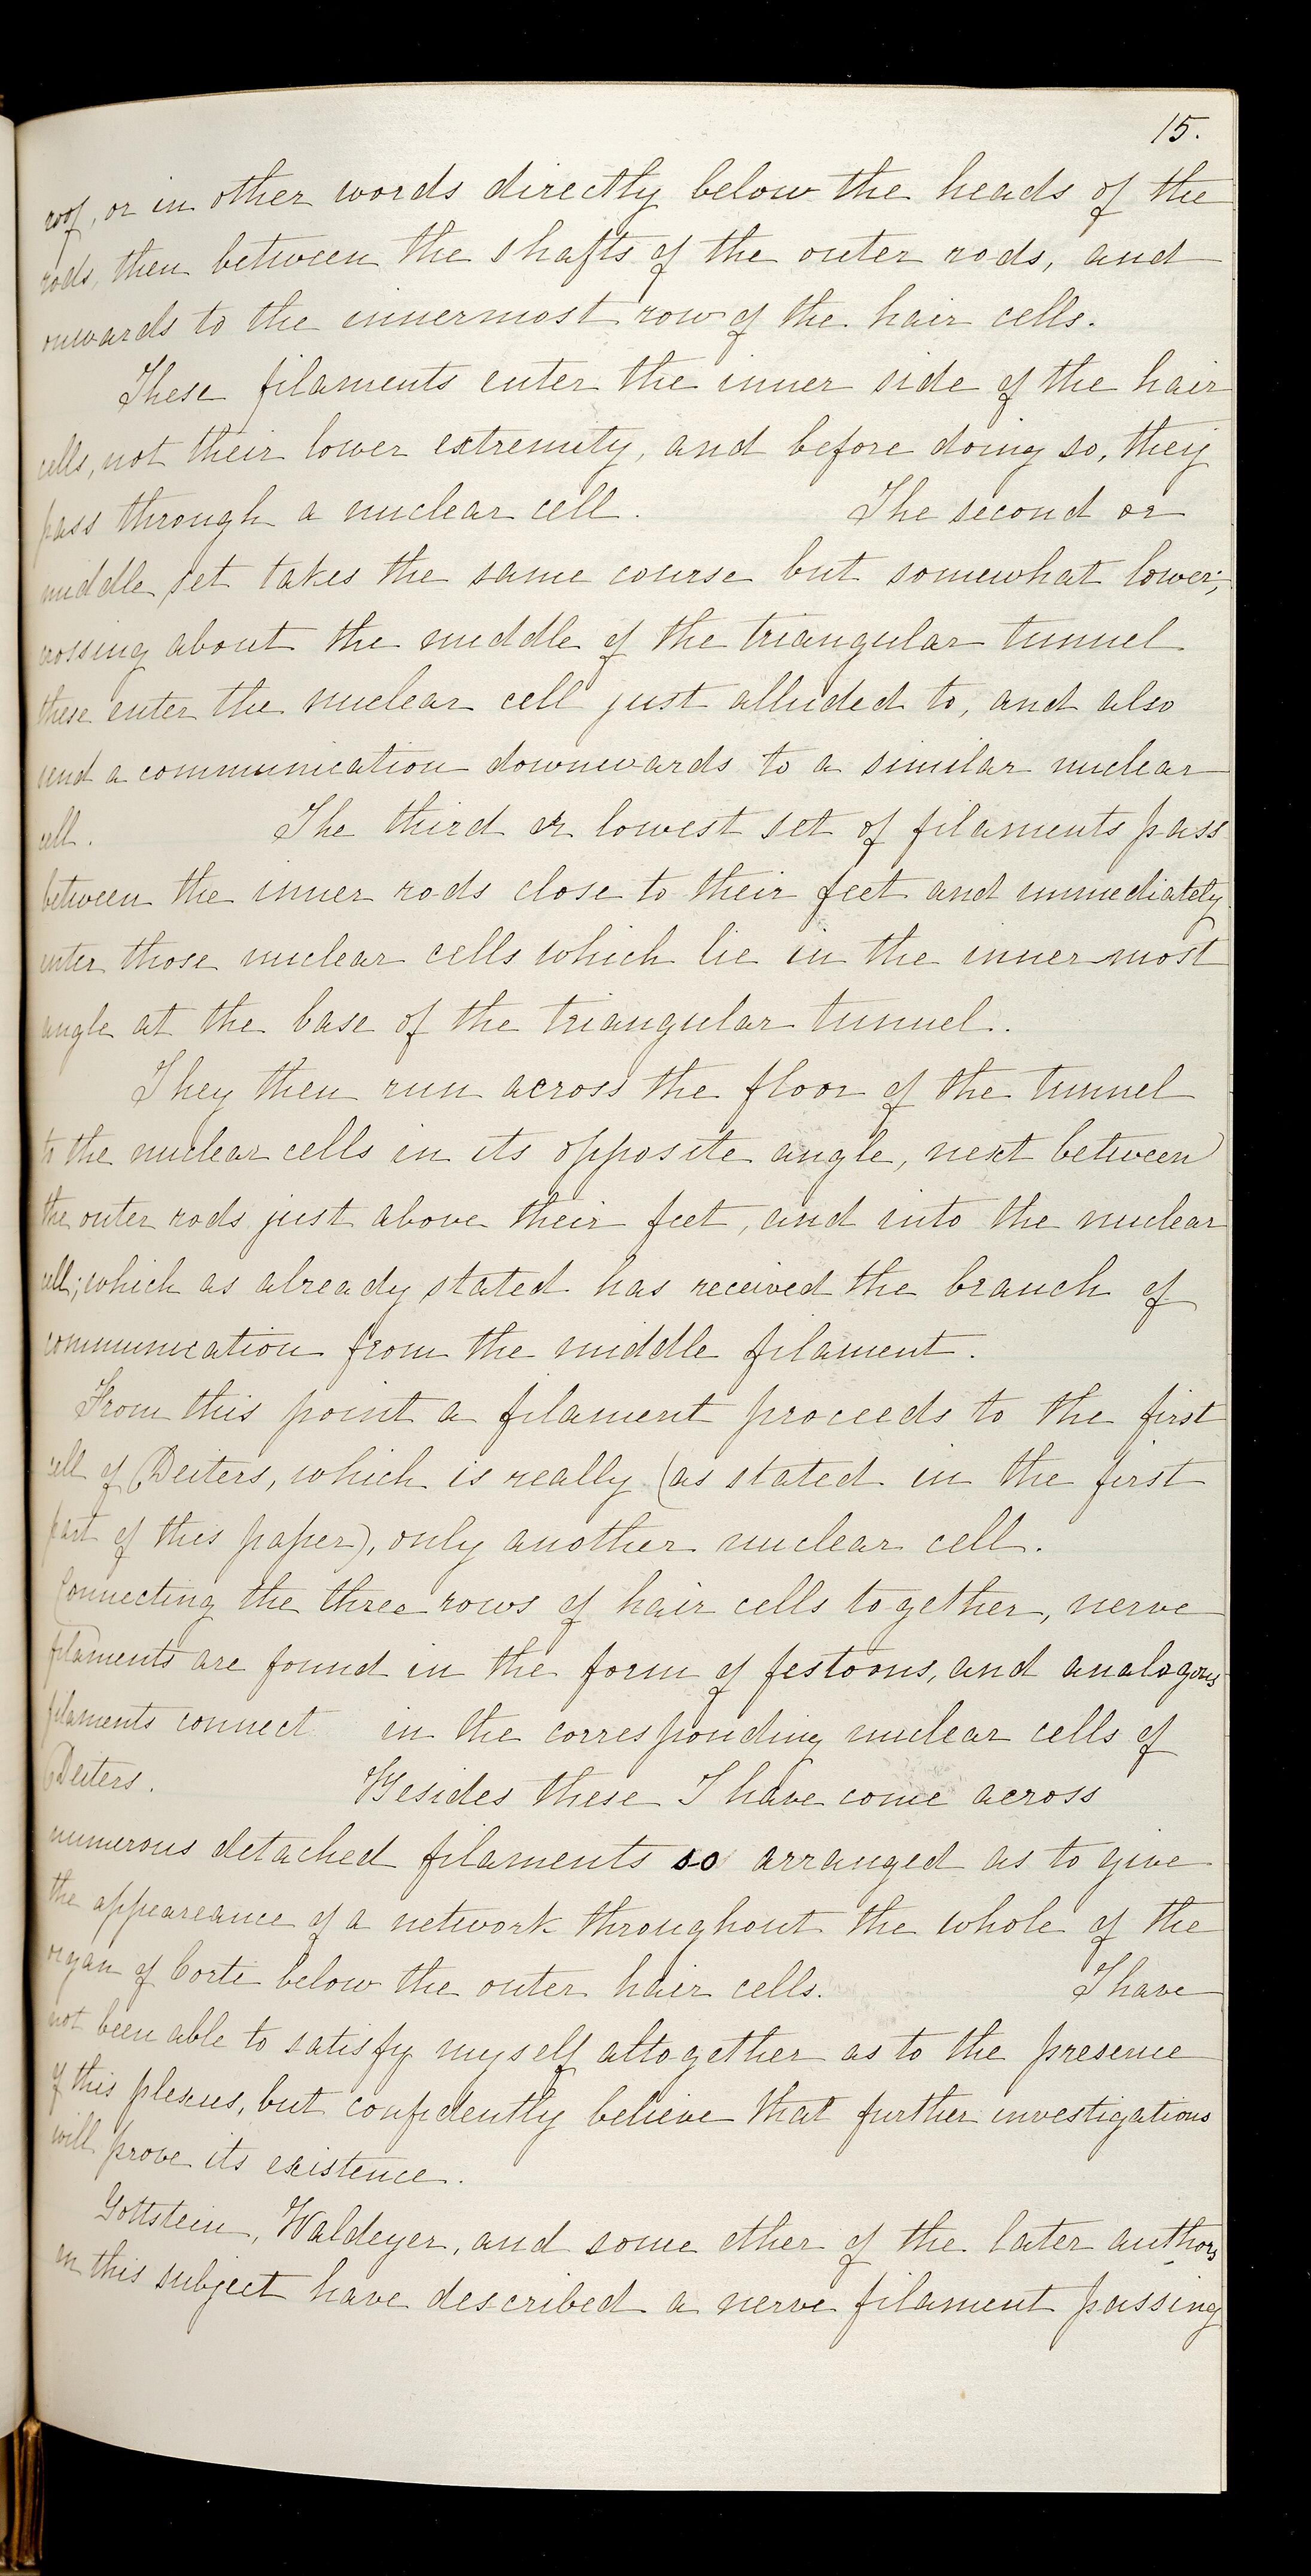 15.
roof, or in other words directly below the heads of the
rods, then between the shafts of the outer rods, and
onwards to the innermost row of the hair cells.
These filaments enter the inner side of the hair
cells, not their lower extremity, and before doing so, they
pass through a nuclear cell. The second or
middle set takes the same course but somewhat lower;
crossing about the middle of the triangular tunnel
these enter the nuclear cell just alluded to, and also
send a communication downwards to a similar nuclear
cell. The third or lowest set of filaments pass
between the inner rods close to their feet and immediately
enter those nuclear cells which lie in the innermost
angle at the base of the triangular tunnel.
They then run across the floor of the tunnel
to the nuclear cells in its opposite angle, next between
the outer rods just above their feet, and into the nuclear
cell; which as already stated has received the branch of
communication from the middle filament.
From this point a filament proceeds to the first
cell of Deiters, which is really (as stated in the first
part of this paper), only another nuclear cell.
Connecting the three rows of hair cells together, nerve
filaments are found in the form of festoons, and analogous
filaments connect in the corresponding nuclear cells of
Deiters. Besides these I have come across
numerous detached filaments so arranged as to give
the appeareance of a network throughout the whole of the
organ of Corti below the outer hair cells. I have
not been able to satisfy myself altogether as to the presence
of this plexus, but confidently believe that further investigations
will prove its existence.
Gottstein, Waldeyer, and some other of the later authors
on this subject have described a nerve filament passing